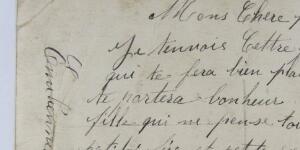 Mons Chere
Je tenvois Cettre
qui te fera bien plai
te portera bonheur
fille qui ne pense tou
petite